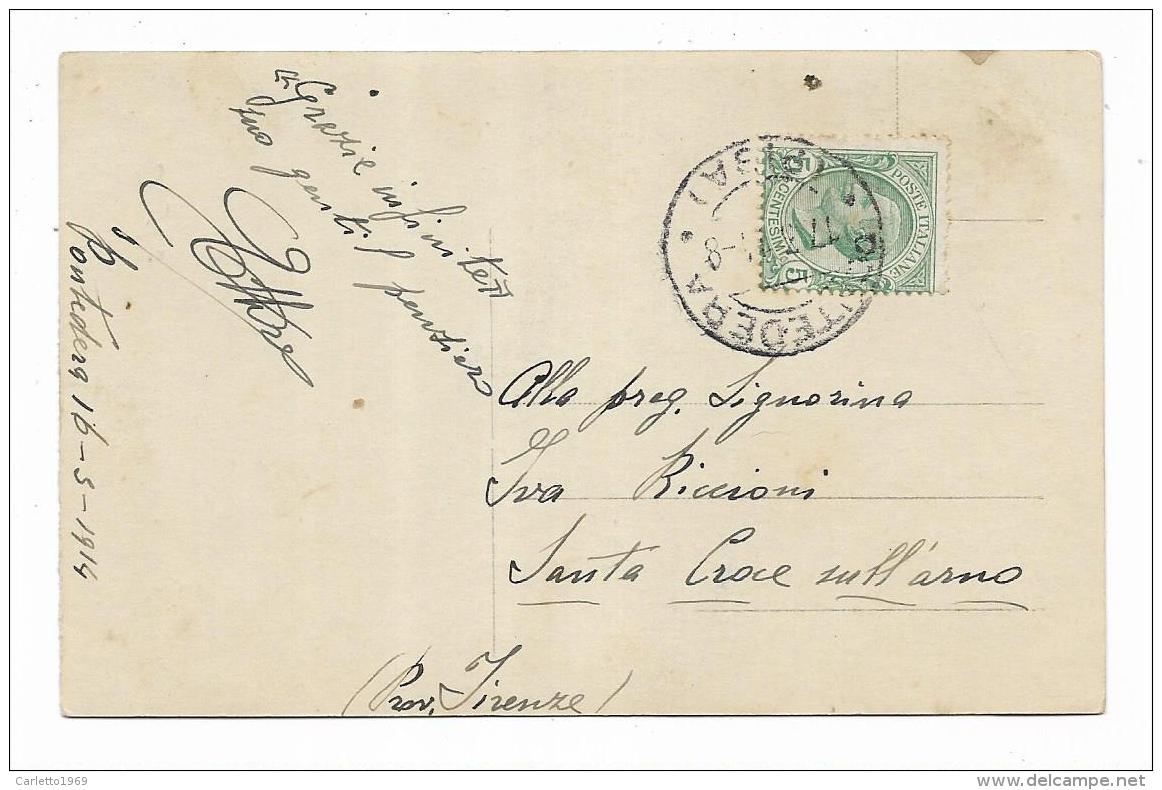 Grazie infinite
tuo gentil pensiero
Pontedera 16-5-1914
PONTEDERA
(PISA)
17
POSTE ITALIANE
5 CENTESIMI 5
Alla preg. Signorina
Iva Riccioni
Santa Croce sull'arno
(Prov. Firenze)
Carletto1969
delcampe.net